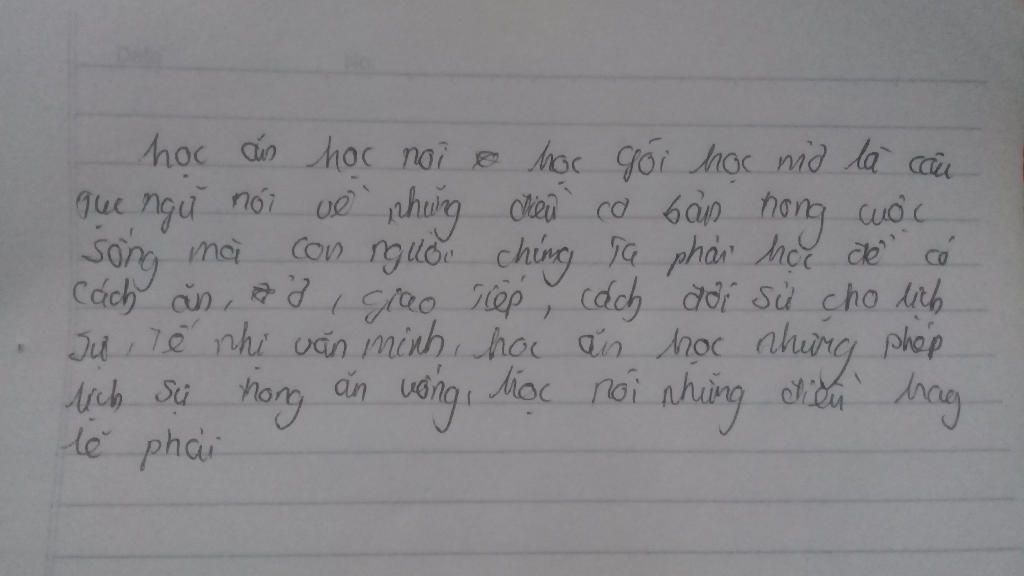 học ăn học nói học gói học mở là câu
tục ngữ nói về những điều cơ bản trong cuộc
sống mà con người chúng ta phải học để có
cách ăn, ở, giao tiếp, cách đối sử cho lịch
sự, tế nhị văn minh, học ăn học những phép
lịch sự trong ăn uống, học nói những điều hay
lẽ phải